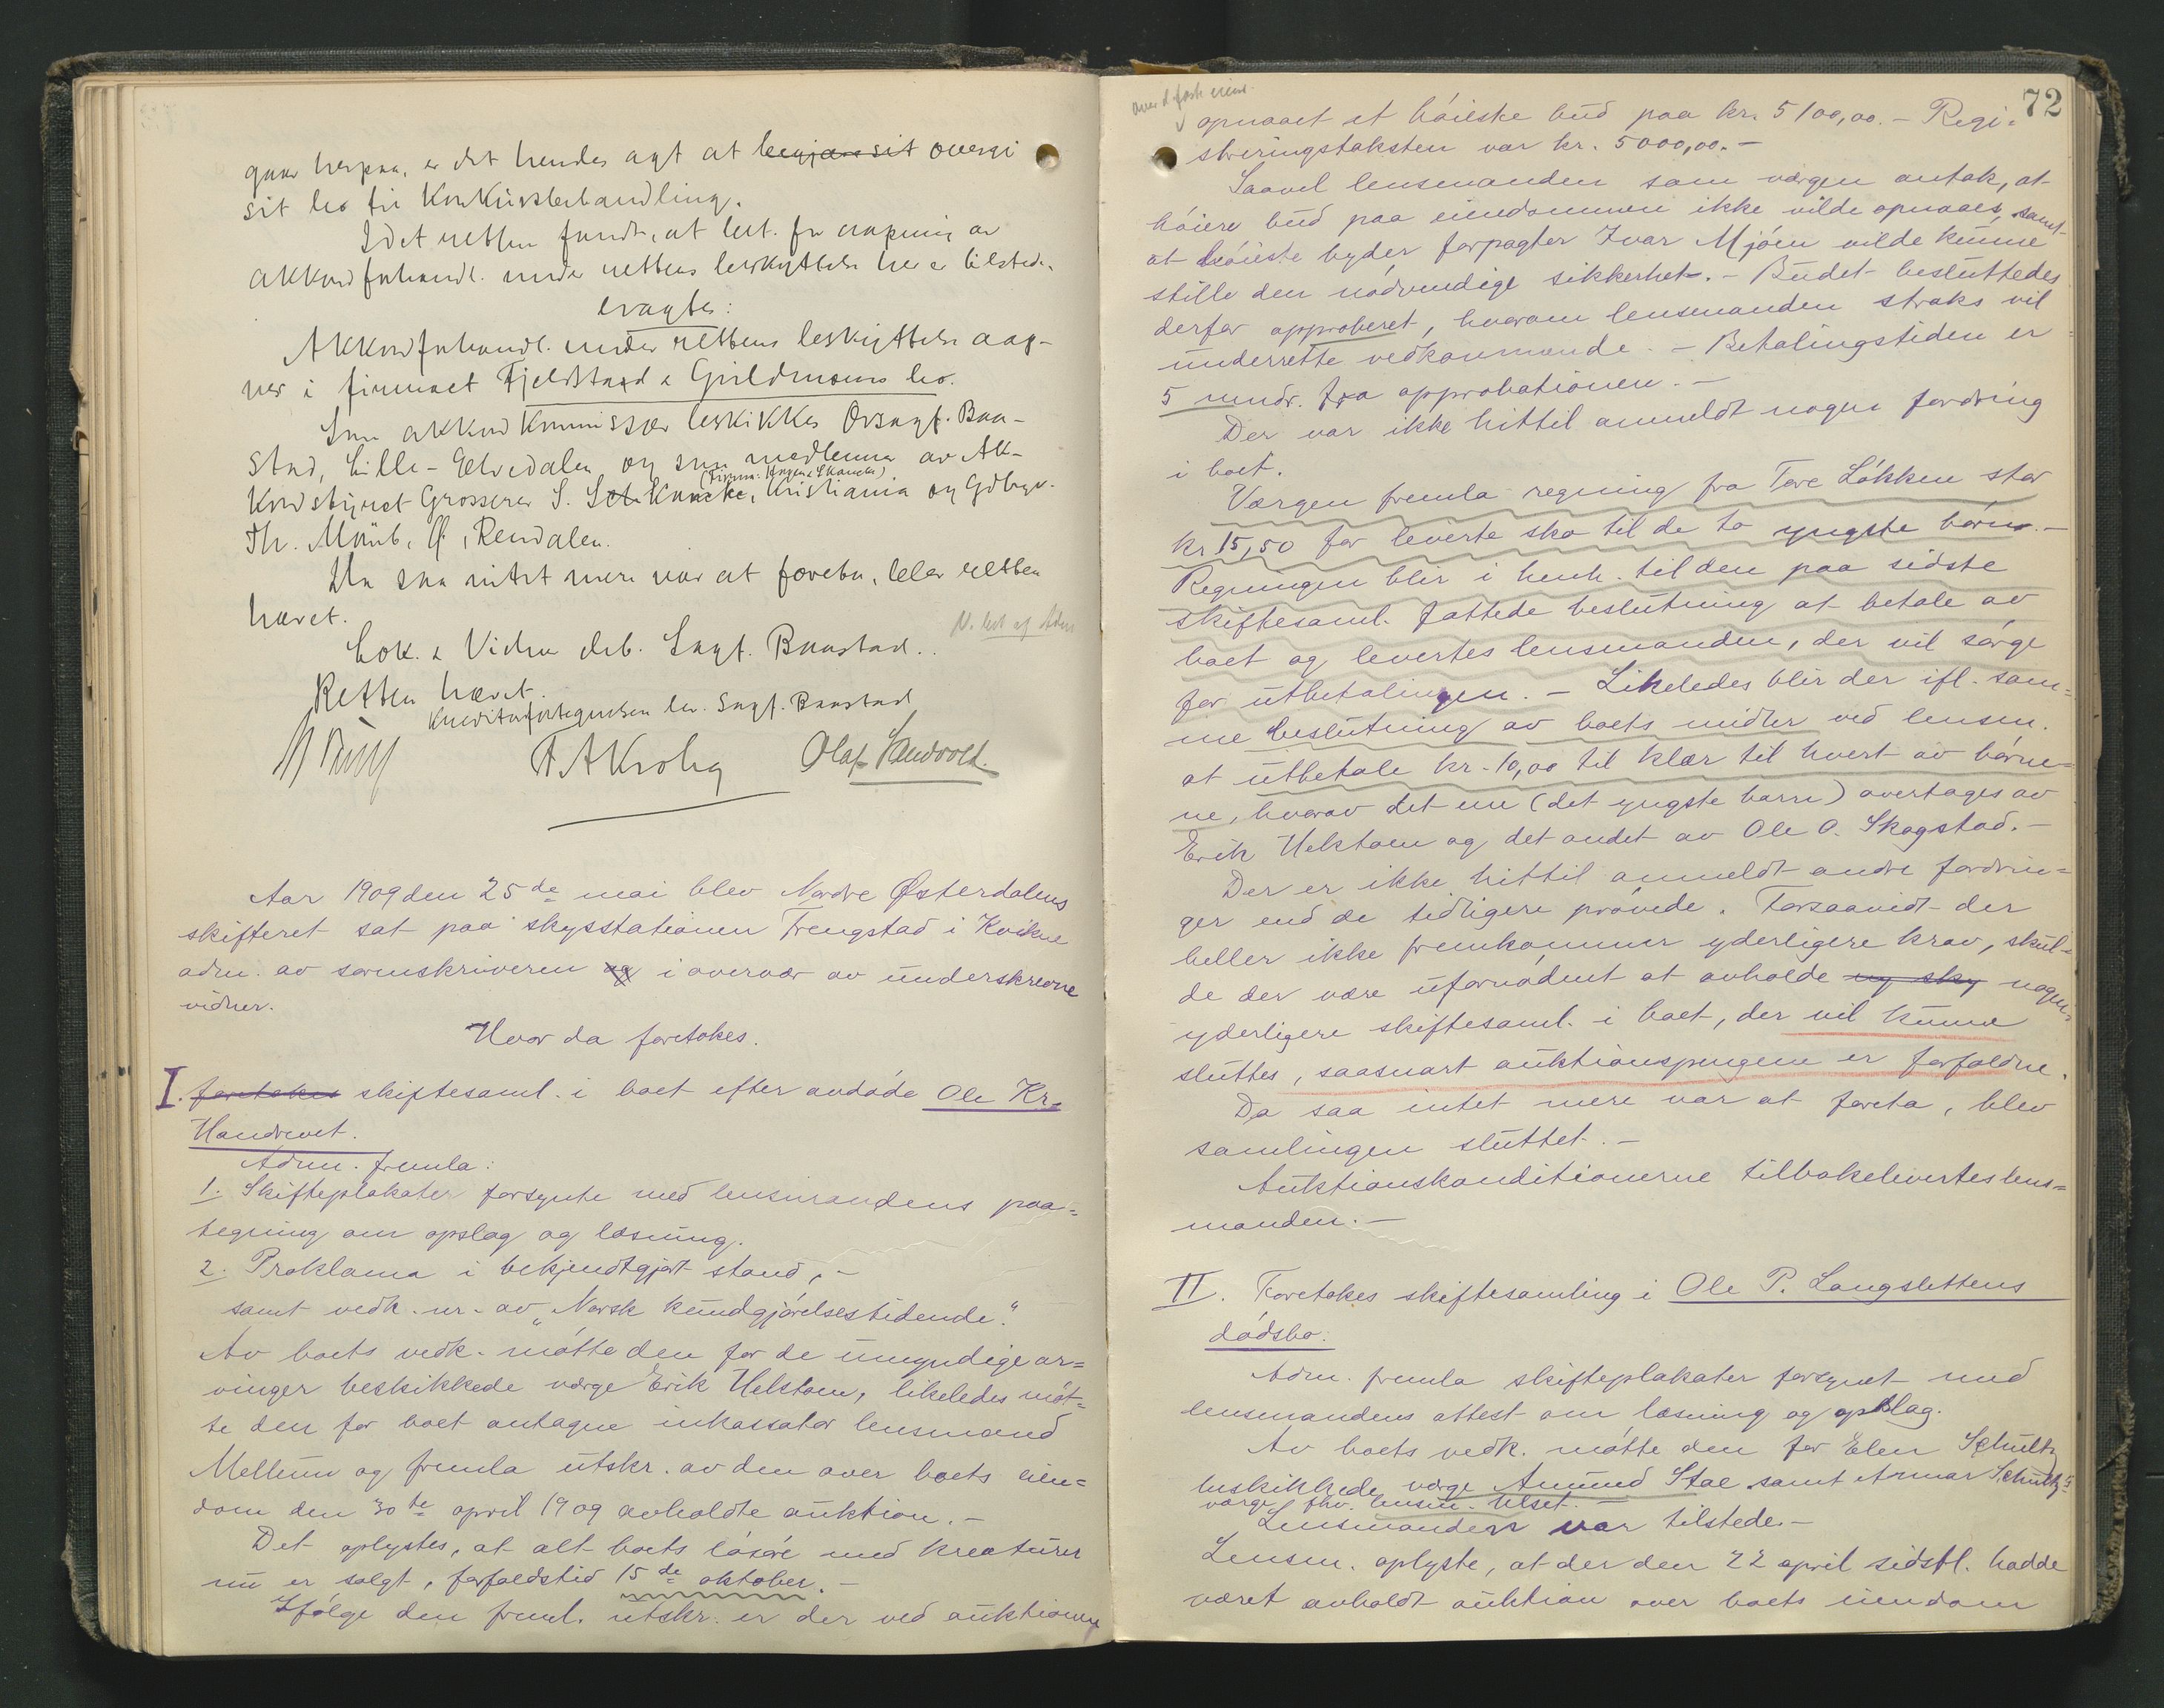 gaar herpaa, er det hendes agt at begjære sit overgi
sit bo til Konkursbehandling.
Idet retten fandt, at bet. for aapning av
akkordforhandl. under rettens beskyttelse her er tilstede,
eragtes:
Akkordforhandl. under rettens beskyttelse aap-
nes i firmaet Fjeldstad & Guldmoens bo.
Som akkordkommissær beskikkes Ovsagf. Baa-
stad, Lille-Elvedalen og som medlemmer av Ak-
kordstyret Grosserer S. Skancke, Kristiania og Gdbgr.
Th. Mømb, Ø. Rendalen.
Da saa intet mere var at foreta, blev retten
hævet.
Lok. & Vidner deb. Sagf. Baastad.
Retten hævet.
Kreditorfortegnelsen lev. Sagf. Baastad
T. A Krohg Olaf Sandvold.
Aar 1909 den 25de mai blev Nordre Østerdalens
skifteret sat paa skysstationen Frengstad i Kvikne
adm. av sorenskriveren og i overvær av underskrevne
vidner.
Hvor da foretokes.
I. foretokes skiftesaml. i boet efter avdøde Ole Kr.
Handrevet.
Adm. fremla:
1. Skifteplakater forsynte med lensmandens paa=
tegning om opslag og læsning.
2. Proklama i bekjendtgjort stand, -
samt vedk. nr. av "Norsk kundgjørelsestidende".
Av boets vedk. møtte den for de umyndige ar=
vinger beskikkede værge Erik Uelstoen, likeledes møt=
te den for boet antagne inkassator lensmand
Mellum og fremla utskr. av den over boets eien=
dom den 30te april 1909 avholdte auktion. -
Det oplystes, at alt boets løsøre med kreaturer
nu er solgt, forfaldstid 15de oktober. -
Ifølge den freml. utskr. er der ved auktionen
72
opnaaet et høieste bud paa kr. 5100,00. - Regi=
streringstaksten var kr. 5000,00. -
Saavel lensmanden som værgen antok, at
høiere bud paa eiendommen ikke vilde opnaaes, samt
at høieste byder forpagter Ivar Mjøen vilde kunne
stille den nødvendige sikkerhet. - Budet besluttedes
derfor approberet, hvorom lensmanden straks vil
underrette vedkommende. - Betalingstiden er
5 mndr. fra approbationen. -
Der var ikke hittil anmeldt nogen fordring
i boet.
Værgen fremla regning fra Tore Løkken stor
kr 15,50 for leverte sko til de to yngste børn. -
Regningen blir i henh. til den paa sidste
skiftesaml. fattede beslutning at betale av
boet og levertes lensmanden, der vil sørge
for utbetalingen. - Likeledes blir der ifl. sam=
me beslutning av boets midler ved lensm.
at utbetale kr. 10,00 til klær til hvert av børne=
ne, hvorav det ene (det yngste barn) overtages av
Erik Uelstoen og det andet av Ole O. Skogstad. -
Der er ikke hittil anmeldt andre fordrin=
ger end de tidligere prøvede. Forsaavidt der
heller ikke fremkommer yderligere krav, skul=
de der være ufornødent at avholde ny sky nogen
yderligere skiftesaml. i boet, der vil kunne
sluttes, saasnart auktionspengene er forfaldne.
Da saa intet mere var at foreta, blev
samlingen sluttet. -
Auktionskonditionerne tilbakelevertes lens=
manden. -
II. Foretokes skiftesamling i Ole P. Langslettens
dødsbo.
Adm. fremla skifteplakater forsynet med
lensmandens attest om læsning og opslag.
Av boets vedk. møtte den for Elen Schultz
beskikkede værge Amund Stae samt Schultz's
værge fhv. lensm. Ulset. -
Lensmanden var tilstede. -
Lensm. oplyste, at der den 22 april sidstl. hadde
været avholdt auktion over boets eiendom